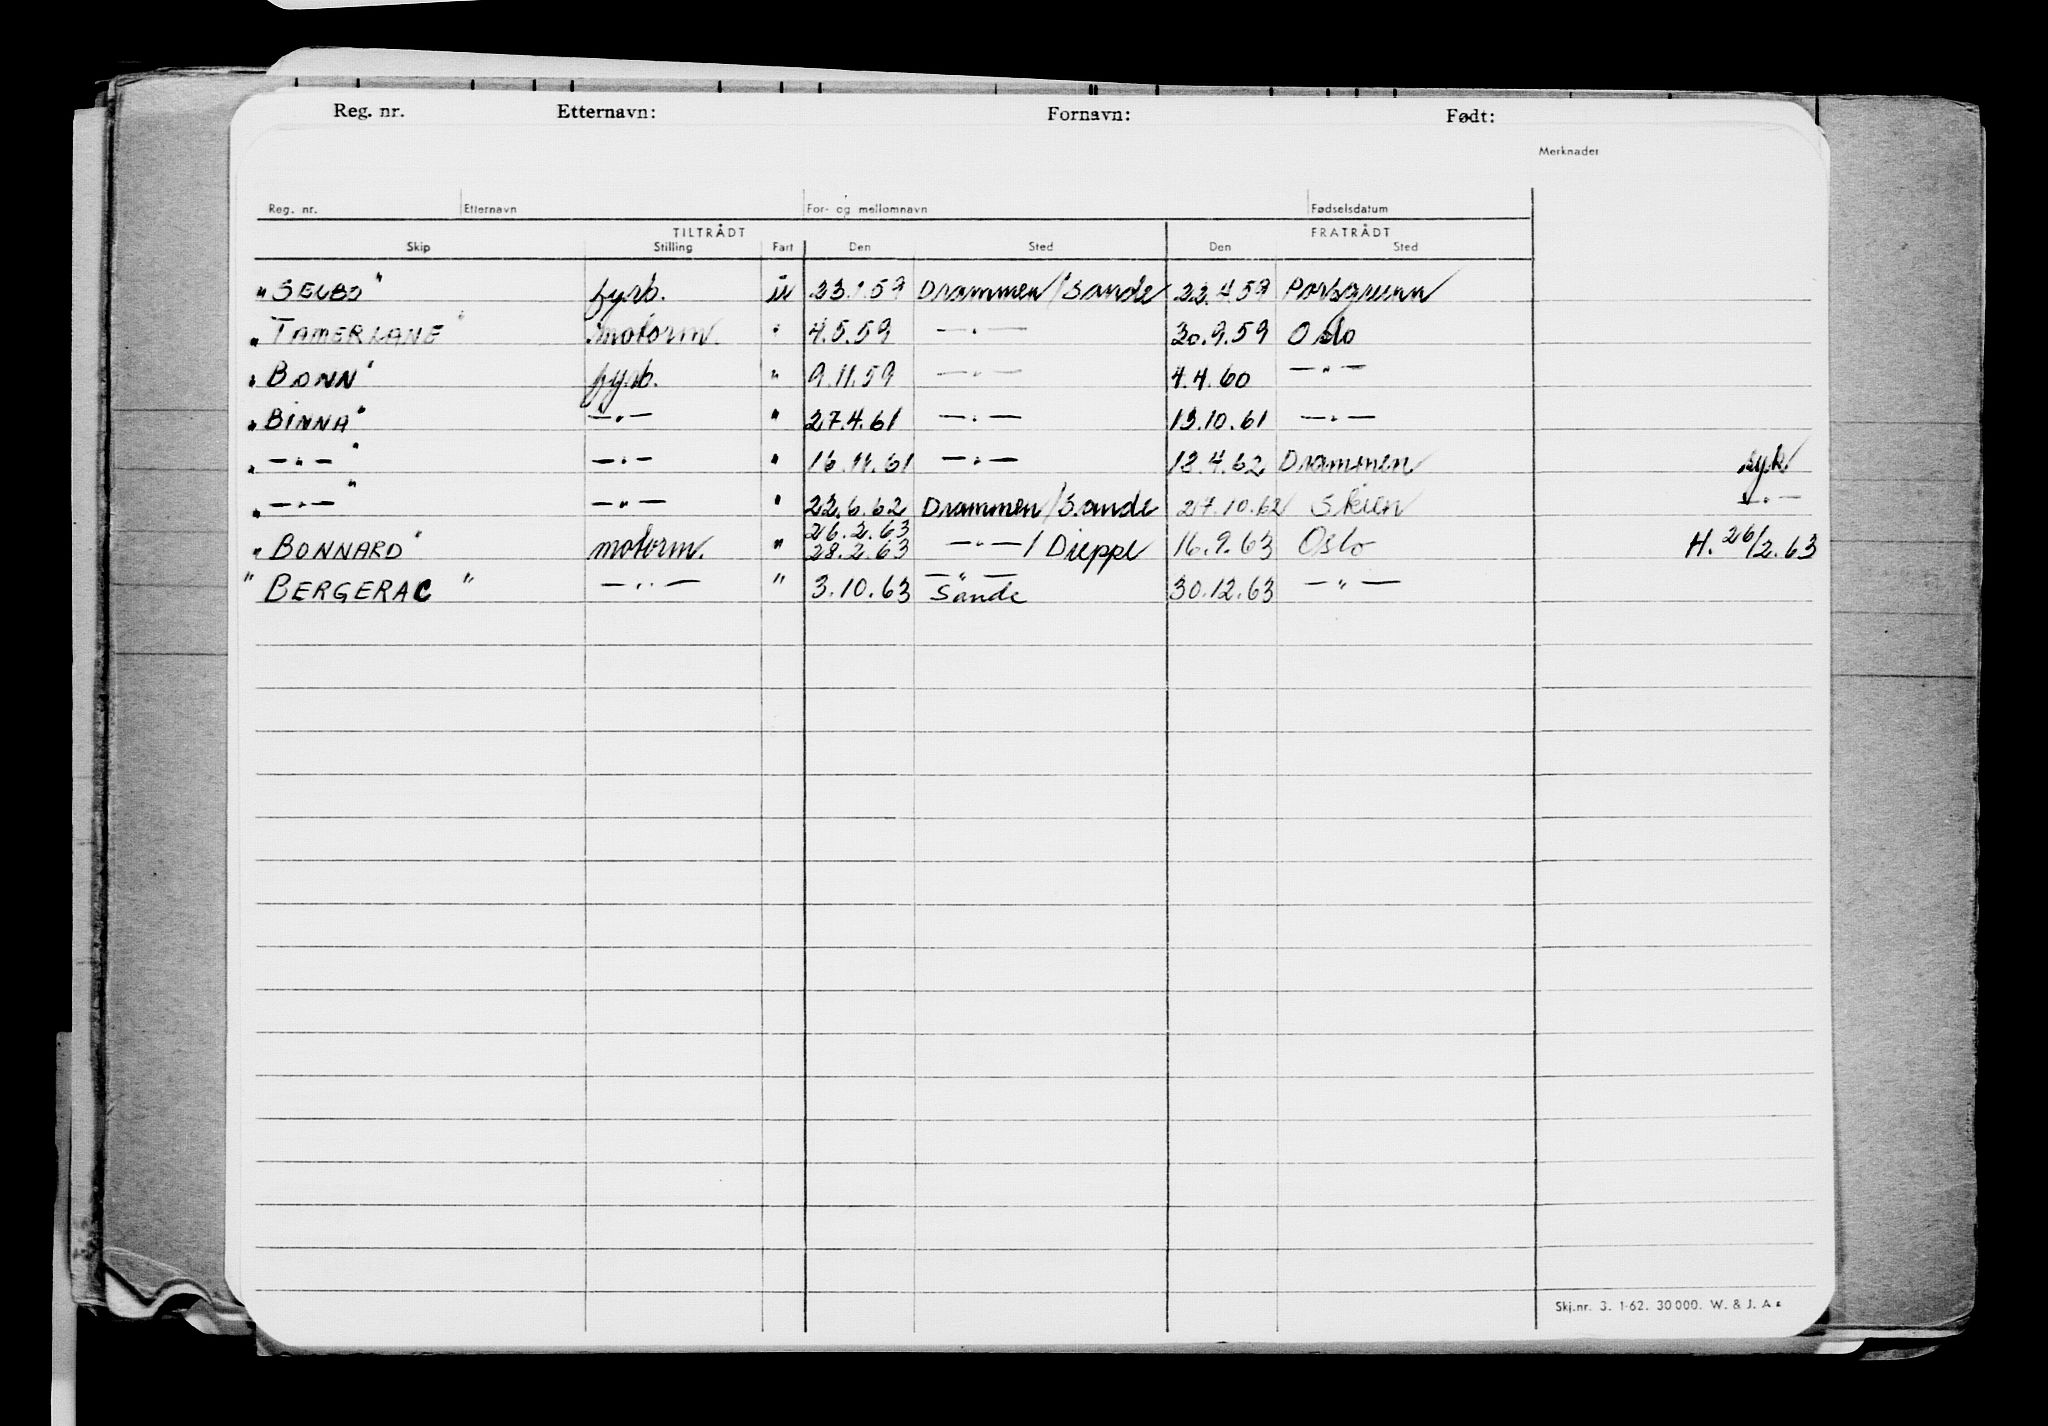 Reg. nr. Etternavn: Fornavn: Født:
Merknader
Reg. nr. Etternavn For- og mellomnavn Fødselsdatum
TILTRÅDT FRATRÅDT
Skip Stilling Fart Den Sted Den Sted
"SELBO" fyrb. u 23.1.59 Drammen/Sande 22.4.59 Porsgrunn
"TAMERLANE" motorm. " 4.5.59 —"— 30.9.59 Oslo
"BONN" fyrb. " 9.11.59 —"— 4.4.60 —"—
"BINNA" —"— " 27.4.61 —"— 13.10.61 —"—
"—"—" —"— " 16.11.61 —"— 18.4.62 Drammen syk
"—"—" —"— " 22.6.62 Drammen/Sande 27.10.62 Skien —"—
26.2.63
"BONNARD" motorm. " 28.2.63 —"—/Dieppe 16.9.63 Oslo H. 26/2.63
"BERGERAC" —"— " 3.10.63 —"— Sande 30.12.63 —"—
Skj.nr. 3. 1-62. 30 000. W. & J. A s